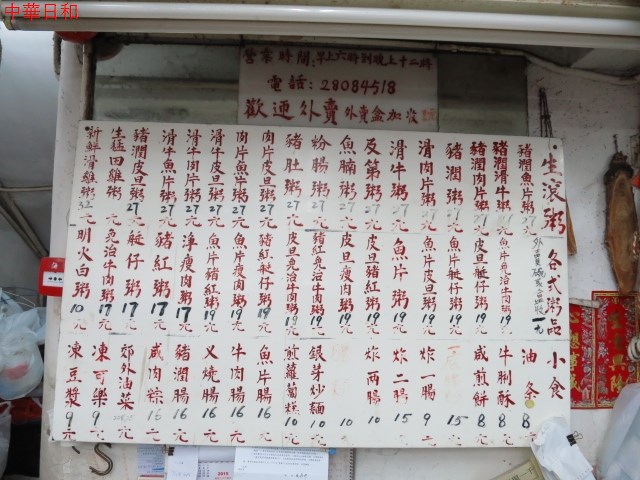 中華日和
營業時間:早上六時到晚上十二時
電話:28084518
歡迎外賣 外賣盒加收
生滾粥
豬潤魚片粥
豬潤滑牛粥
豬潤肉片粥
豬潤粥
滑肉片粥
滑牛粥
及第粥 27
魚腩粥 27
粉腸粥 27
豬肚粥 27
肉片皮旦粥 27
肉片魚片粥 27
滑牛肉片粥 27
滑牛魚片粥 27
豬潤皮旦粥 27
生猛田雞粥
新鮮滑雞粥 32元
各式粥品
外賣碗或盒收一元
魚片免治牛肉粥 19元
皮旦艇仔粥 19元
魚片艇仔粥 19元
魚片皮旦粥 19元
魚片粥 19元
皮旦豬紅粥 19元
皮旦瘦肉粥 19元
豬紅免治牛肉粥 19元
皮旦免治牛肉粥 19元
豬紅艇仔粥 19元
魚片瘦肉粥 19元
魚片豬紅粥 19元
淨瘦肉粥 17元
豬紅粥 17元
艇仔粥 17元
免治牛肉粥 17元
明火白粥 10元
小食
油条 8元
牛脷酥 8元
咸煎餅 8元
15元
炸一腸 9元
炸二腸 15
炸兩腸 10
10
銀芽炒麵 10元
煎蘿蔔糕 10元
魚片腸 16元
牛肉腸 16元
叉燒腸 16元
豬潤腸 16元
咸肉粽 16元
郊外油菜 元
凍可樂 9元
凍豆漿 9元